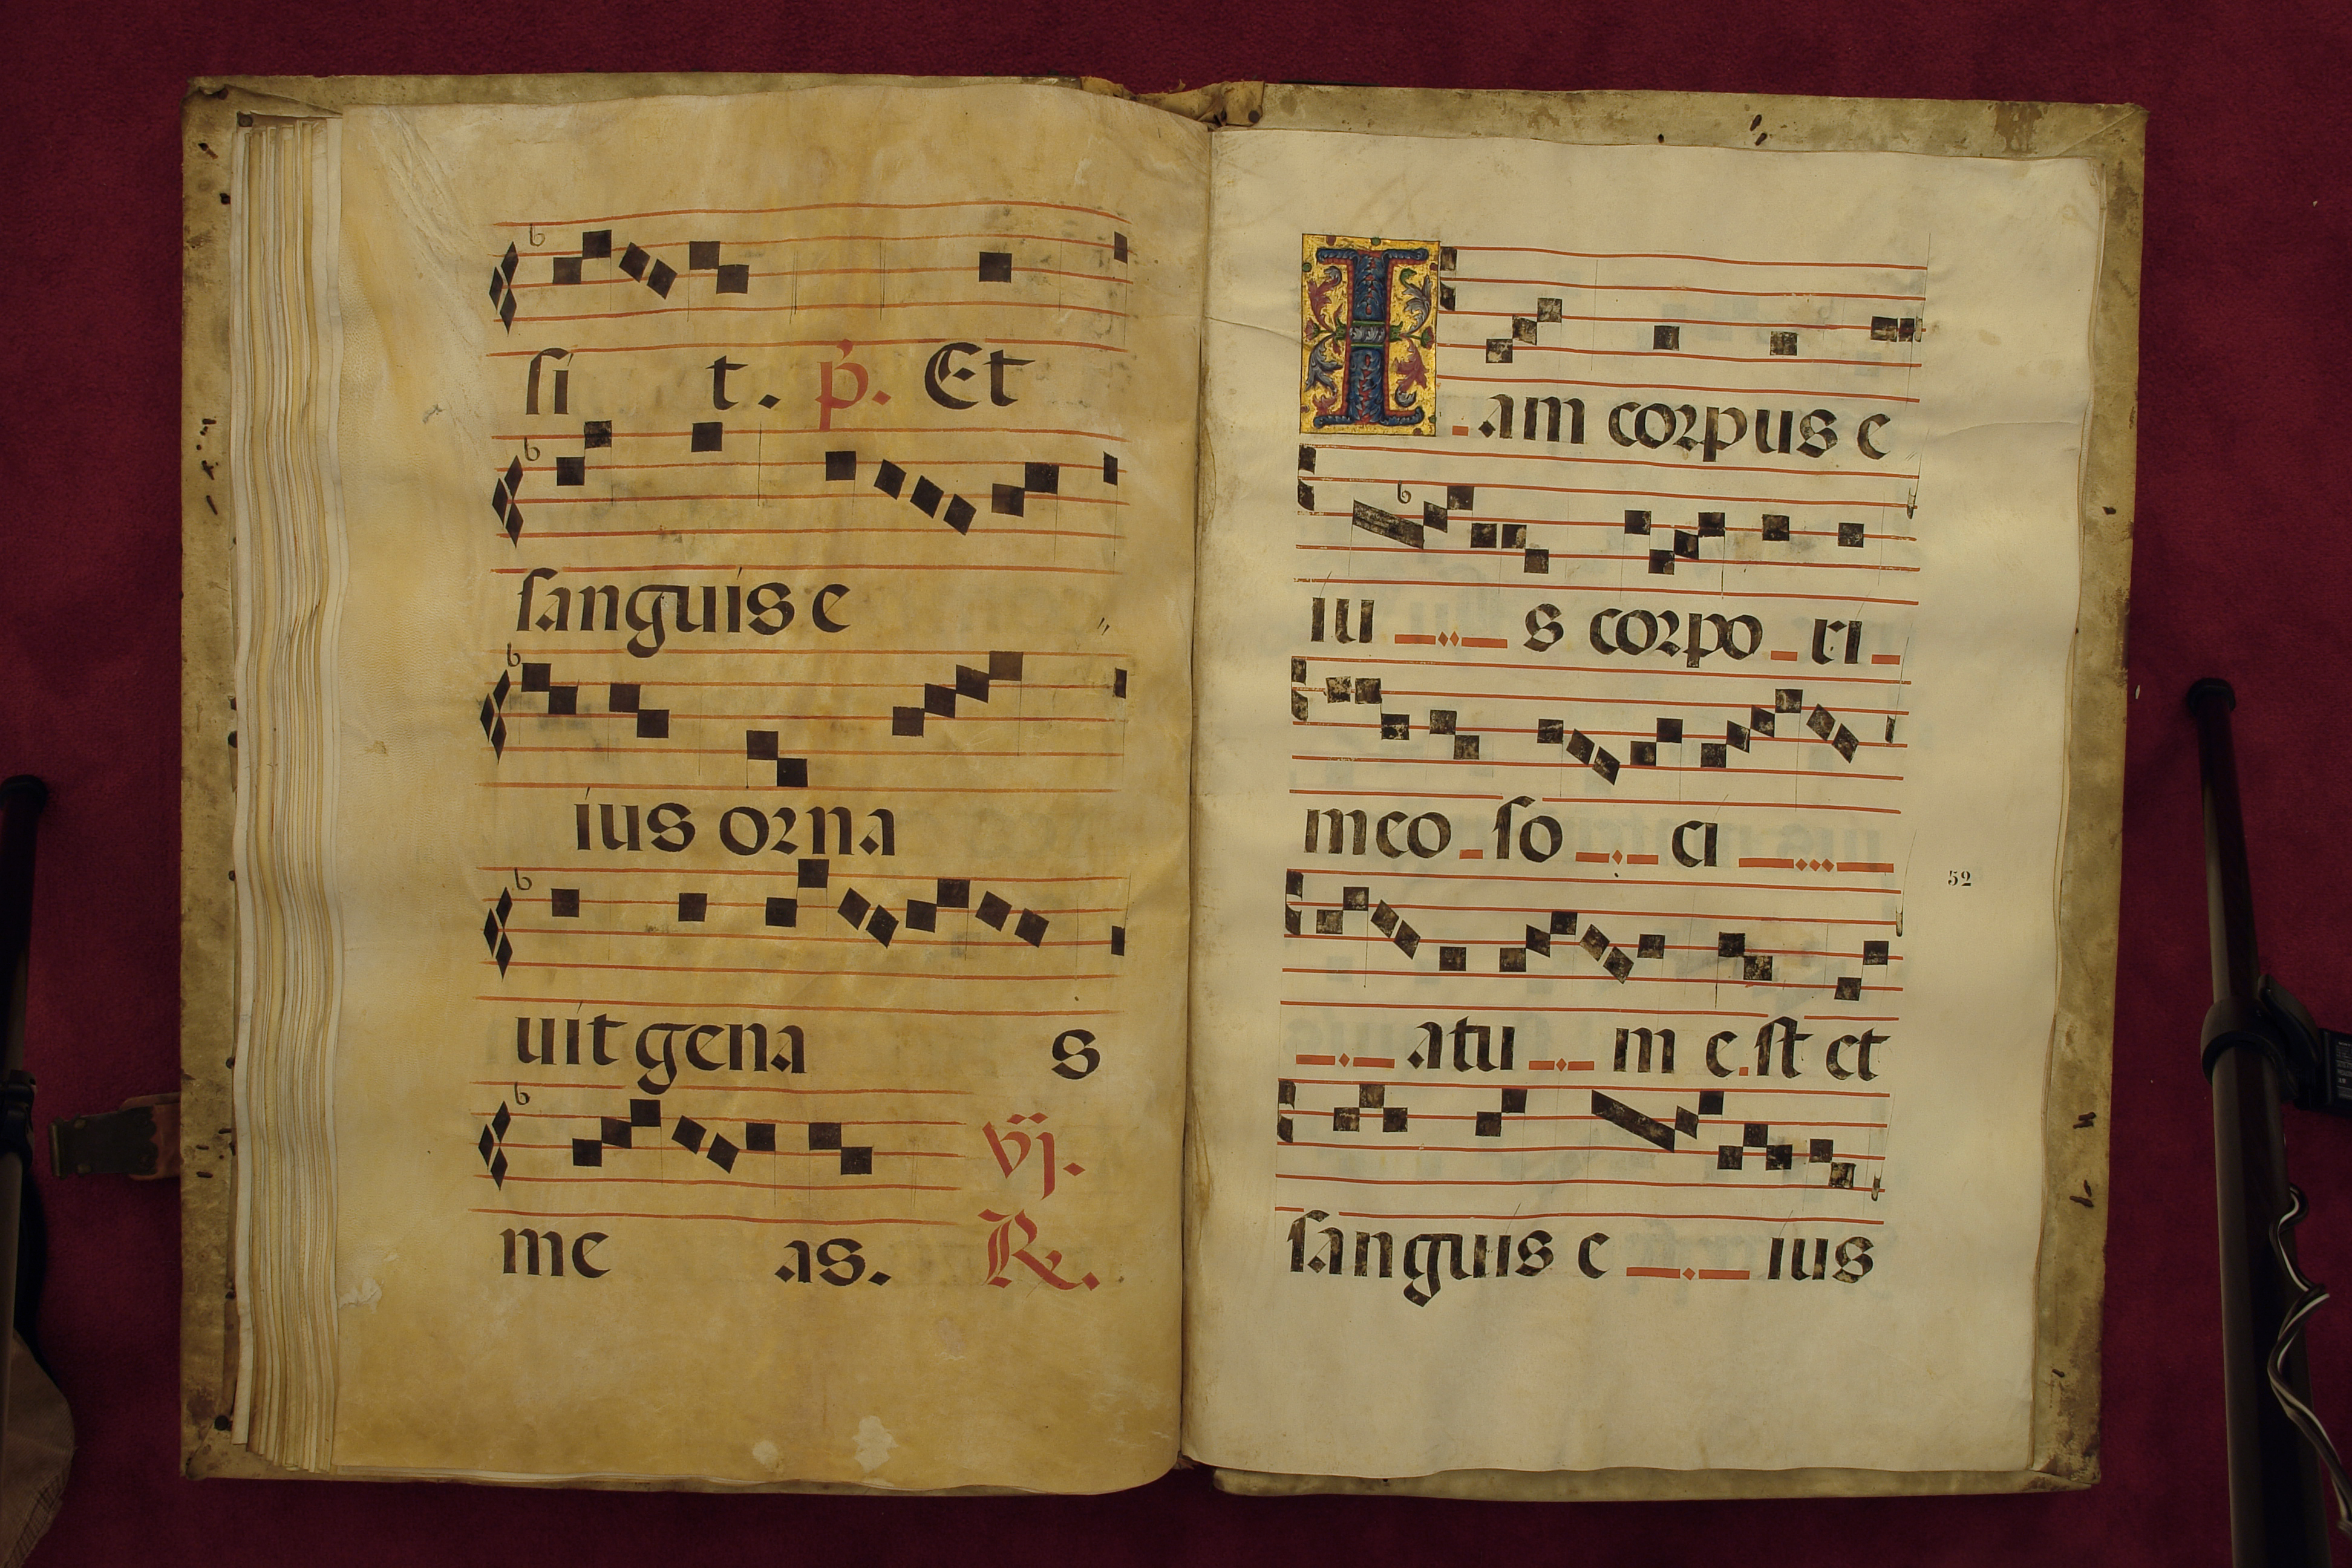 si t. p. Et
sanguis e
ius orna
uit gena s
me as. vij. R.
I am corpus e
iu s corpo ri
meo so ci
atu m est et
sanguis e ius
52